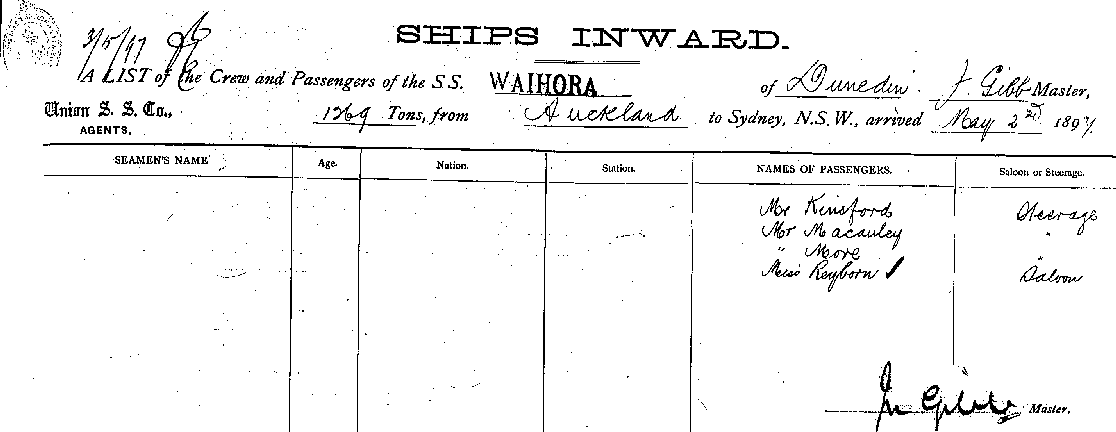 SHIPS INWARD.
3/5/97
A LIST of the Crew and Passengers of the S.S. WAIHORA of Dunedin J Gibb Master,
Union S. S. Co.,
AGENTS,
1269 Tons, from Auckland to Sydney, N.S.W., arrived May 2nd 1897
SEAMEN'S NAME Age. Nation. Station. NAMES OF PASSENGERS. Saloon or Steerage.
Mr Kinsford Steerage
Mr Macauley "
" More "
Miss Reyborn Saloon
Jn Gibb Master.